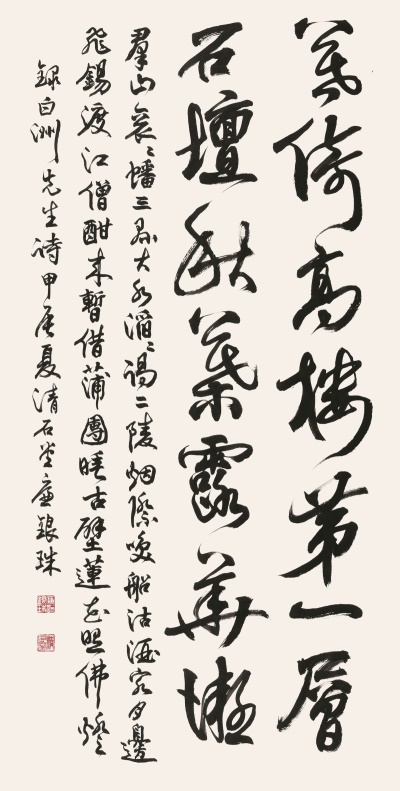 倚高樓第一層
石壇秋葉露華凝
羣山袞〻蟠三大水滔〻謁二陵烟際喚船沽酒客月邊
飛錫渡江僧酣來暫借蒲團睡古壁蓮花照佛燈
録白洲先生詩甲辰夏清石堂廉銀珠